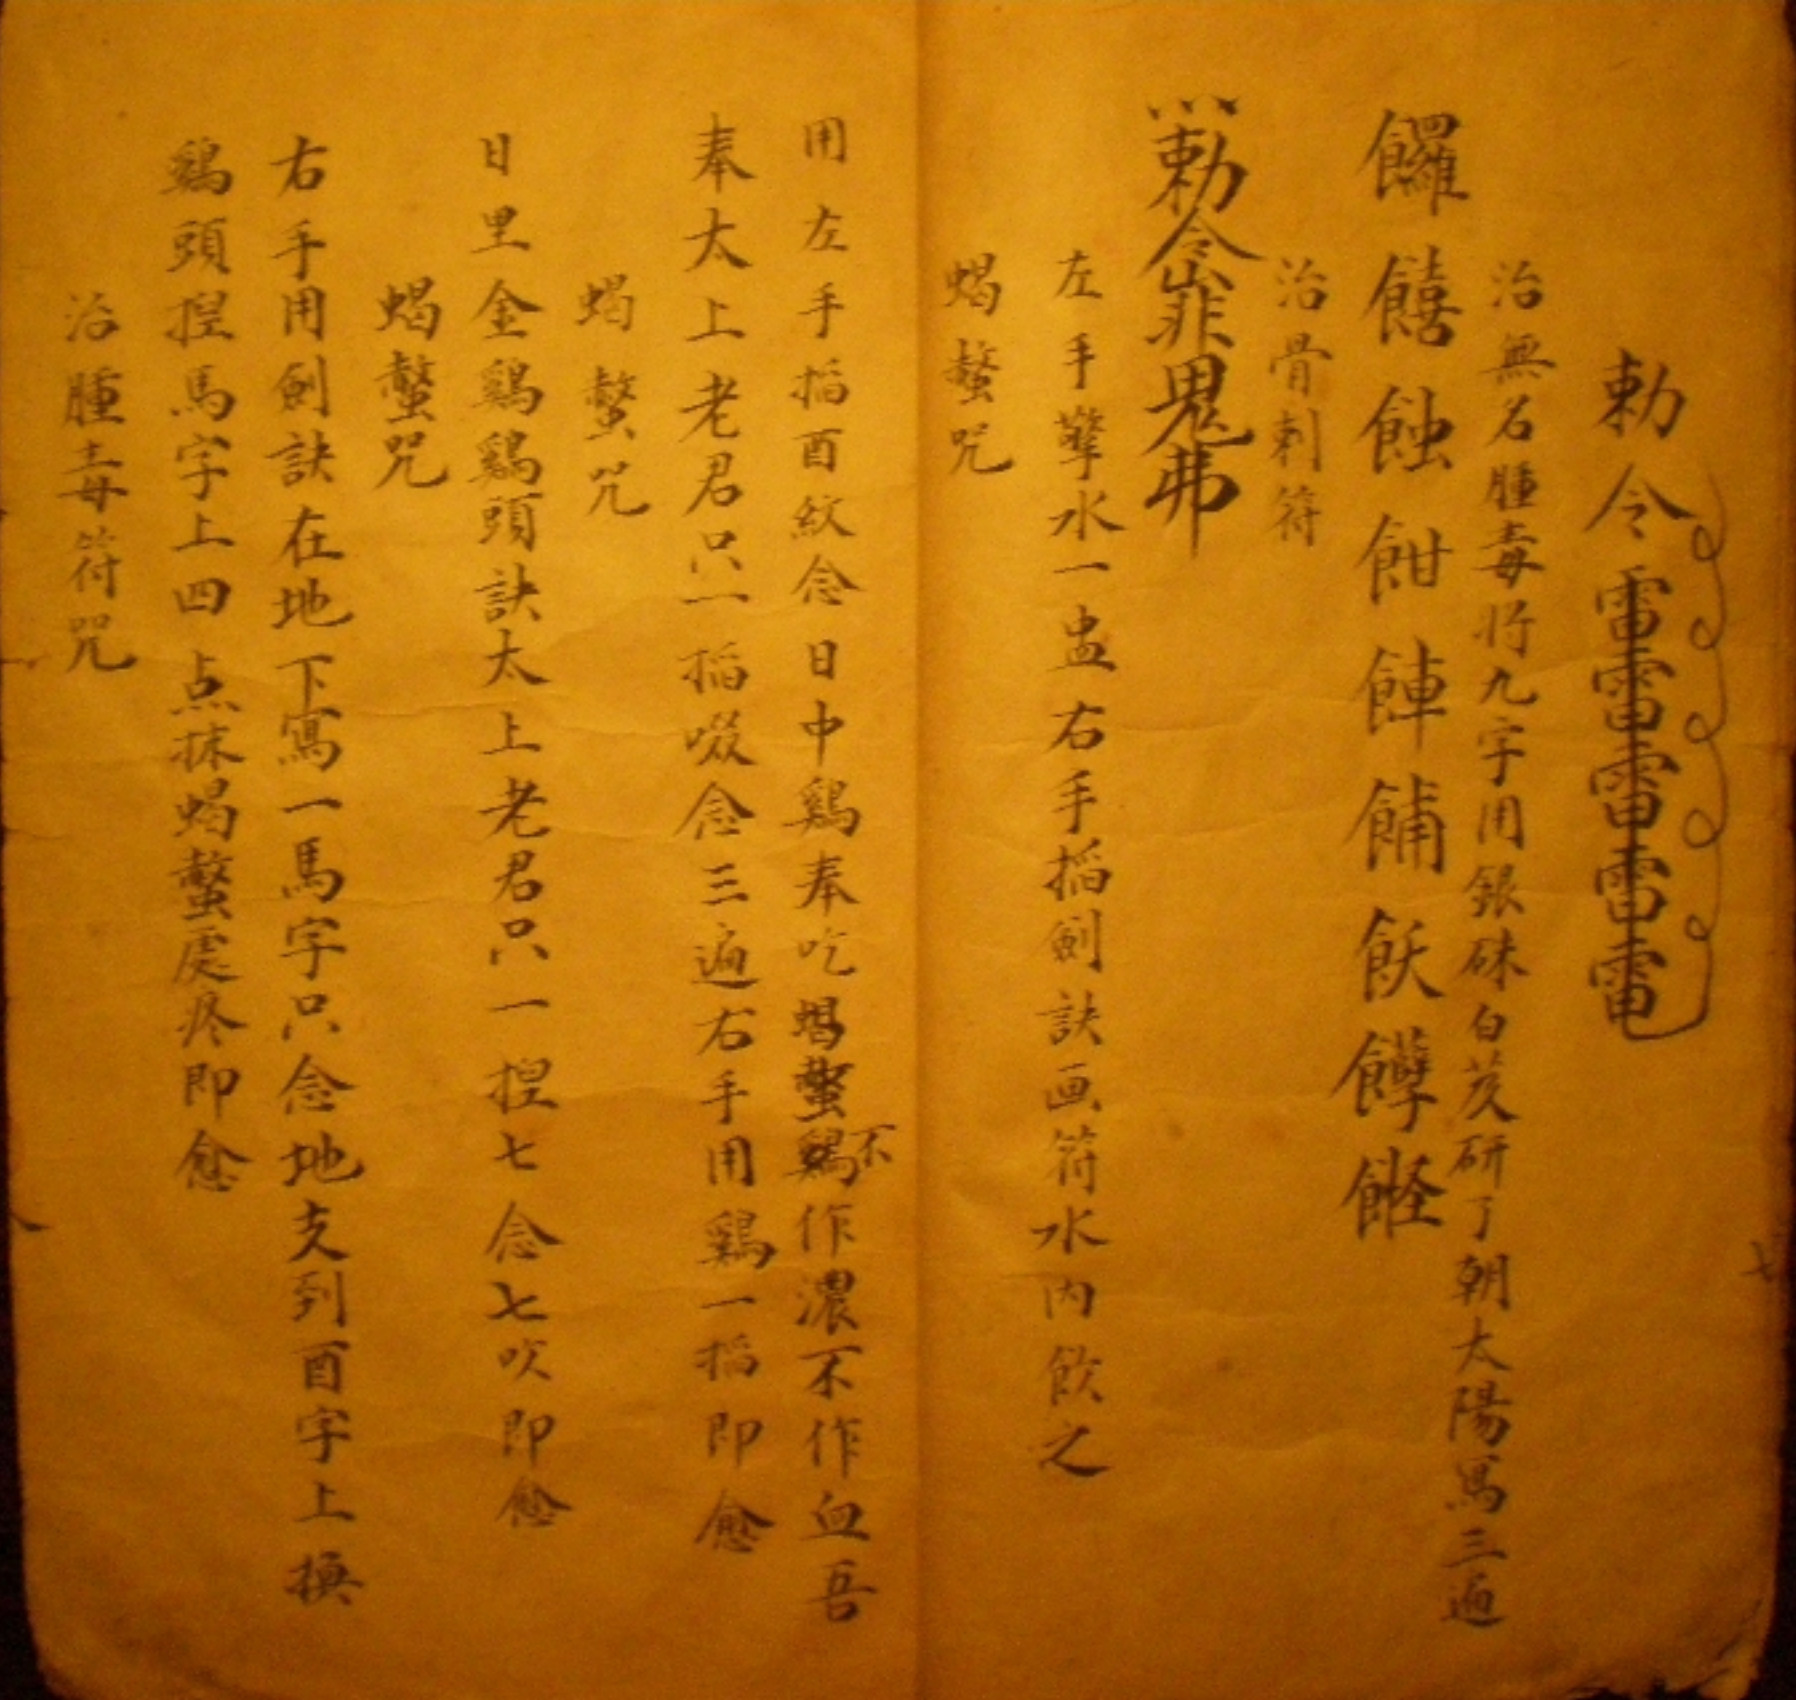 勅令雷雷雷雷雷
治無名腫毒將九字用銀硃白芨研了朝太陽寫三遍
饠饎蝕
治骨刺符
勅令
左手擎水一盅右手搯劍訣画符水内飲之
蝎螫咒
用左手搯酉紋念日中鷄奉吃蝎螫鷄不作濃不作血吾
奉太上老君只一搯啜念三遍右手用鷄一搯即愈
蝎螫咒
日里金鷄鷄頭訣太上老君只一揑七念七吹即愈
蝎螫咒
右手用劍訣在地下寫一馬字只念地支到酉字上換
鷄頭揑馬字上四点抹蝎螫處疼即愈
治腫毒符咒